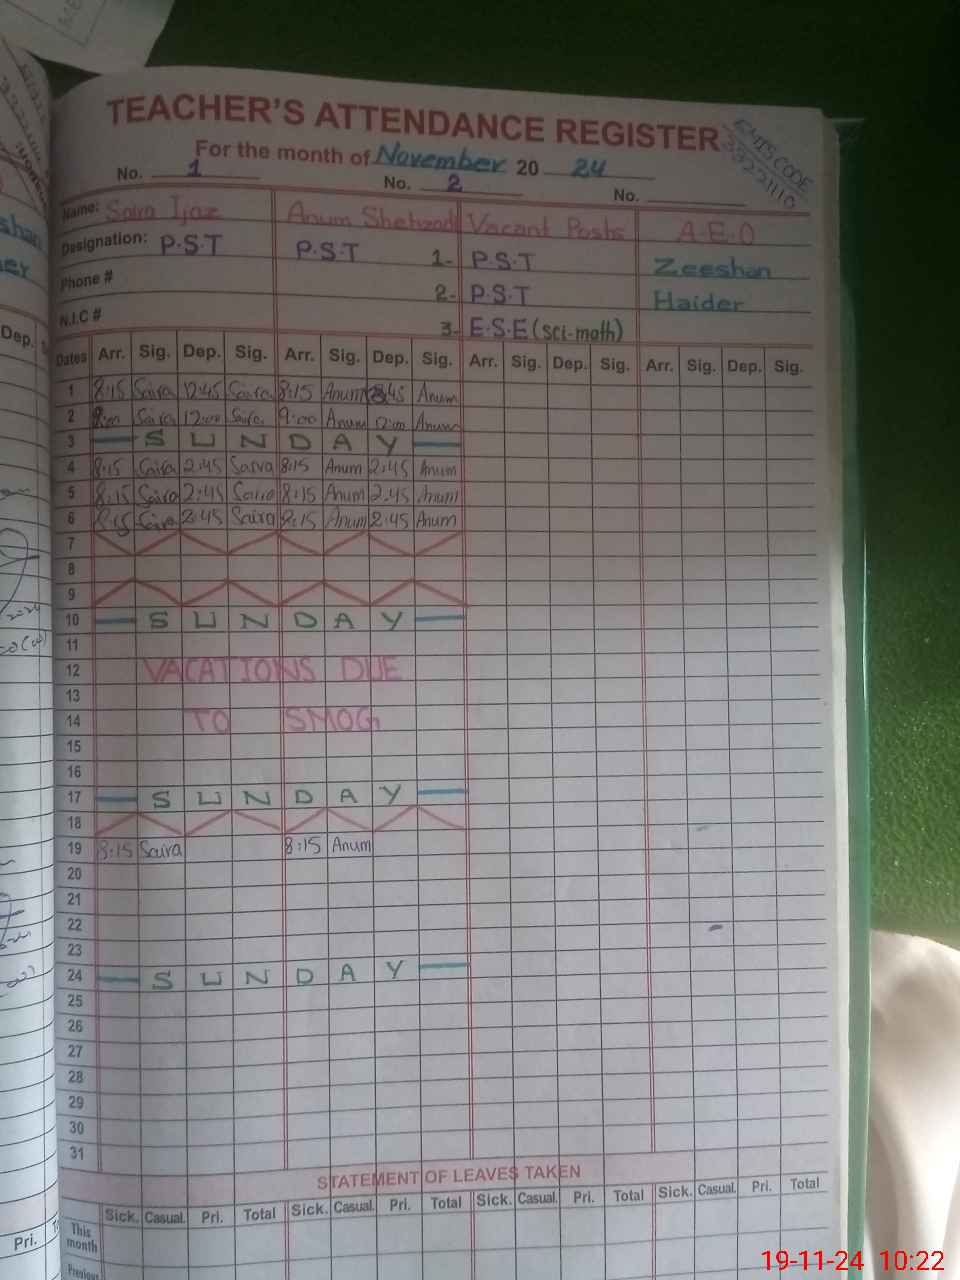 TEACHER'S ATTENDANCE REGISTER
EMIS CODE
For the month of November 20 24
No. 1 No. 2 No.
Name: Saira Ijaz Anum Shehzad Vacant Posts A.E.O
Designation: P.S.T P.S.T 1- P.S.T Zeeshan
Phone # 2- P.S.T Haider
N.I.C # 3- E.S.E (Sci-math)
Dates Arr. Sig. Dep. Sig. Arr. Sig. Dep. Sig. Arr. Sig. Dep. Sig. Arr. Sig. Dep. Sig.
1 8:15 Saira 12:45 Saira 8:15 Anum Anum
2 Saira 12:00 Saira 9:00 Anum 12:00 Anum
3 S U N D A Y
4 8:15 Saira 2:45 Saira 8:15 Anum 2:45 Anum
5 8:15 Saira 2:45 Saira 8:15 Anum 2:45 Anum
6 8:15 Saira 2:45 Saira 8:15 Anum 2:45 Anum
7
8
9
10 S U N D A Y
11
12 VACATIONS DUE
13
14 TO SMOG
15
16
17 S U N D A Y
18
19 8:15 Saira 8:15 Anum
20
21
22
23
24 S U N D A Y
25
26
27
28
29
30
31
STATEMENT OF LEAVES TAKEN
Sick. Casual. Pri. Total Sick. Casual. Pri. Total Sick. Casual. Pri. Total Sick. Casual. Pri. Total
This
month
Previous
Dep.
Pri.
19-11-24 10:22